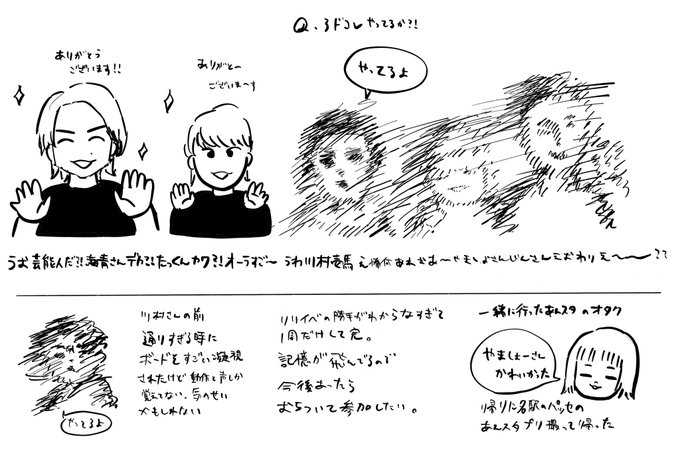 Q. 3ドコレやってるか?!
ありがとう
ございます!!
ありがとー
ございまーす
やってるよ
うお芸能人だ?!海青さんデカ?!たっくんカワ?!オーラすご〜 うわ川村壱馬
川村さんの前
通りすぎる時に
ボードをすごいご凝視
されたけど動作と声しか
覚えてない、気のせい
かもしれない
やってるよ
リリイベの勝手がわからなすぎて
1周だけして完。
記憶が飛んでるので
今後あったら
おちついて参加したい。
一緒に行ったあんスタのオタク
やましょーさん
かわいかった
帰りに名駅のパッセの
あんスタプリ撮って帰った